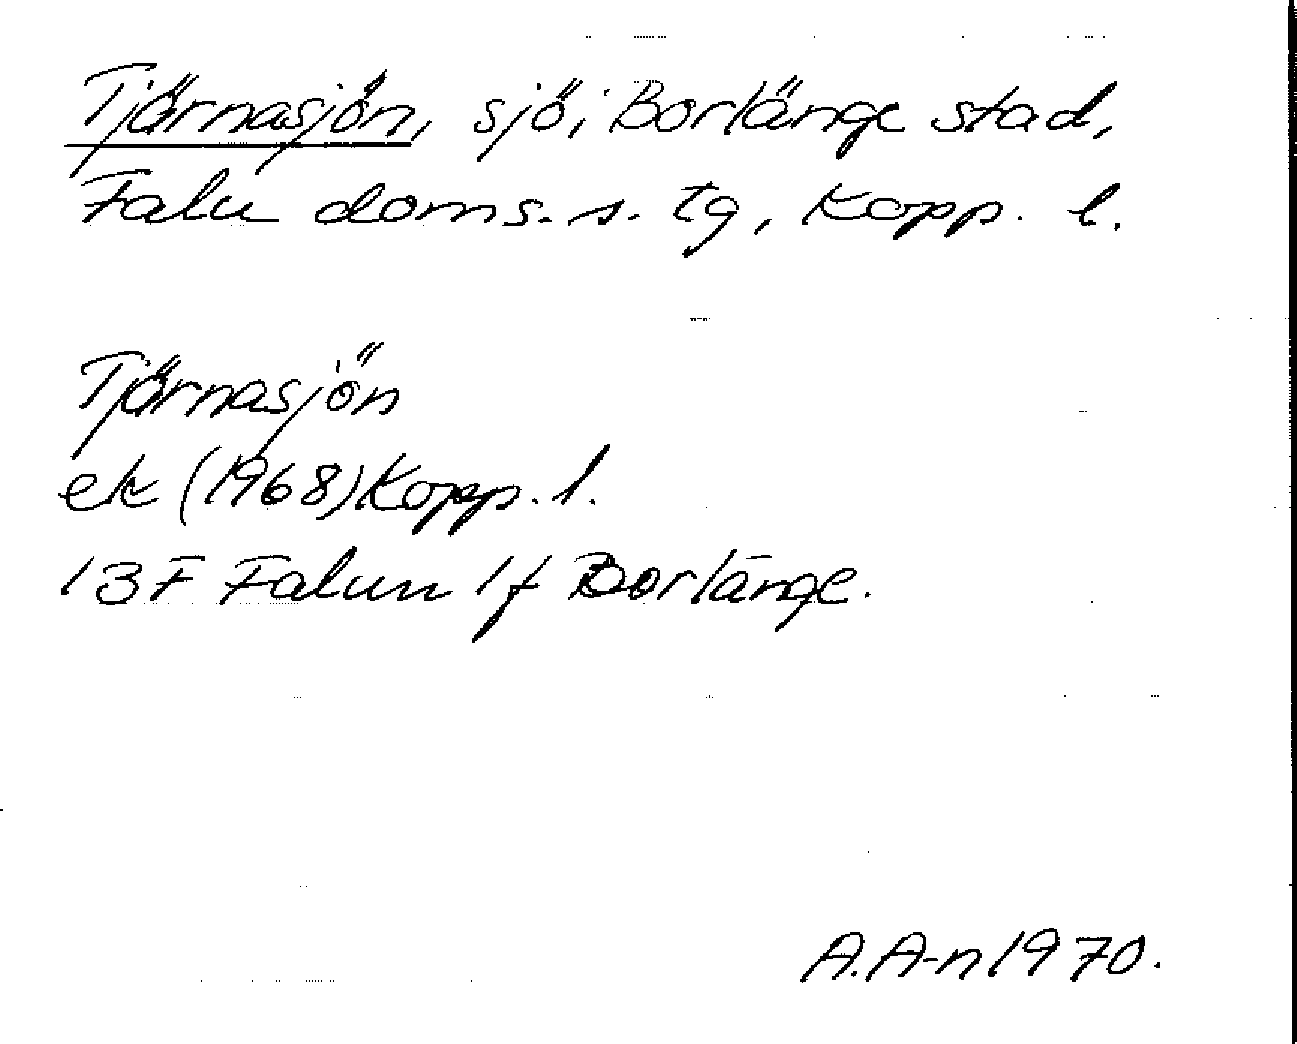 Tjärnasjön, sjö i Borlänge stad,
Falu doms. s. tg, Kopp. l.
Tjärnasjön
ek (1968) Kopp. l.
13F Falun 1f Borlänge.
A. A-n 1970.